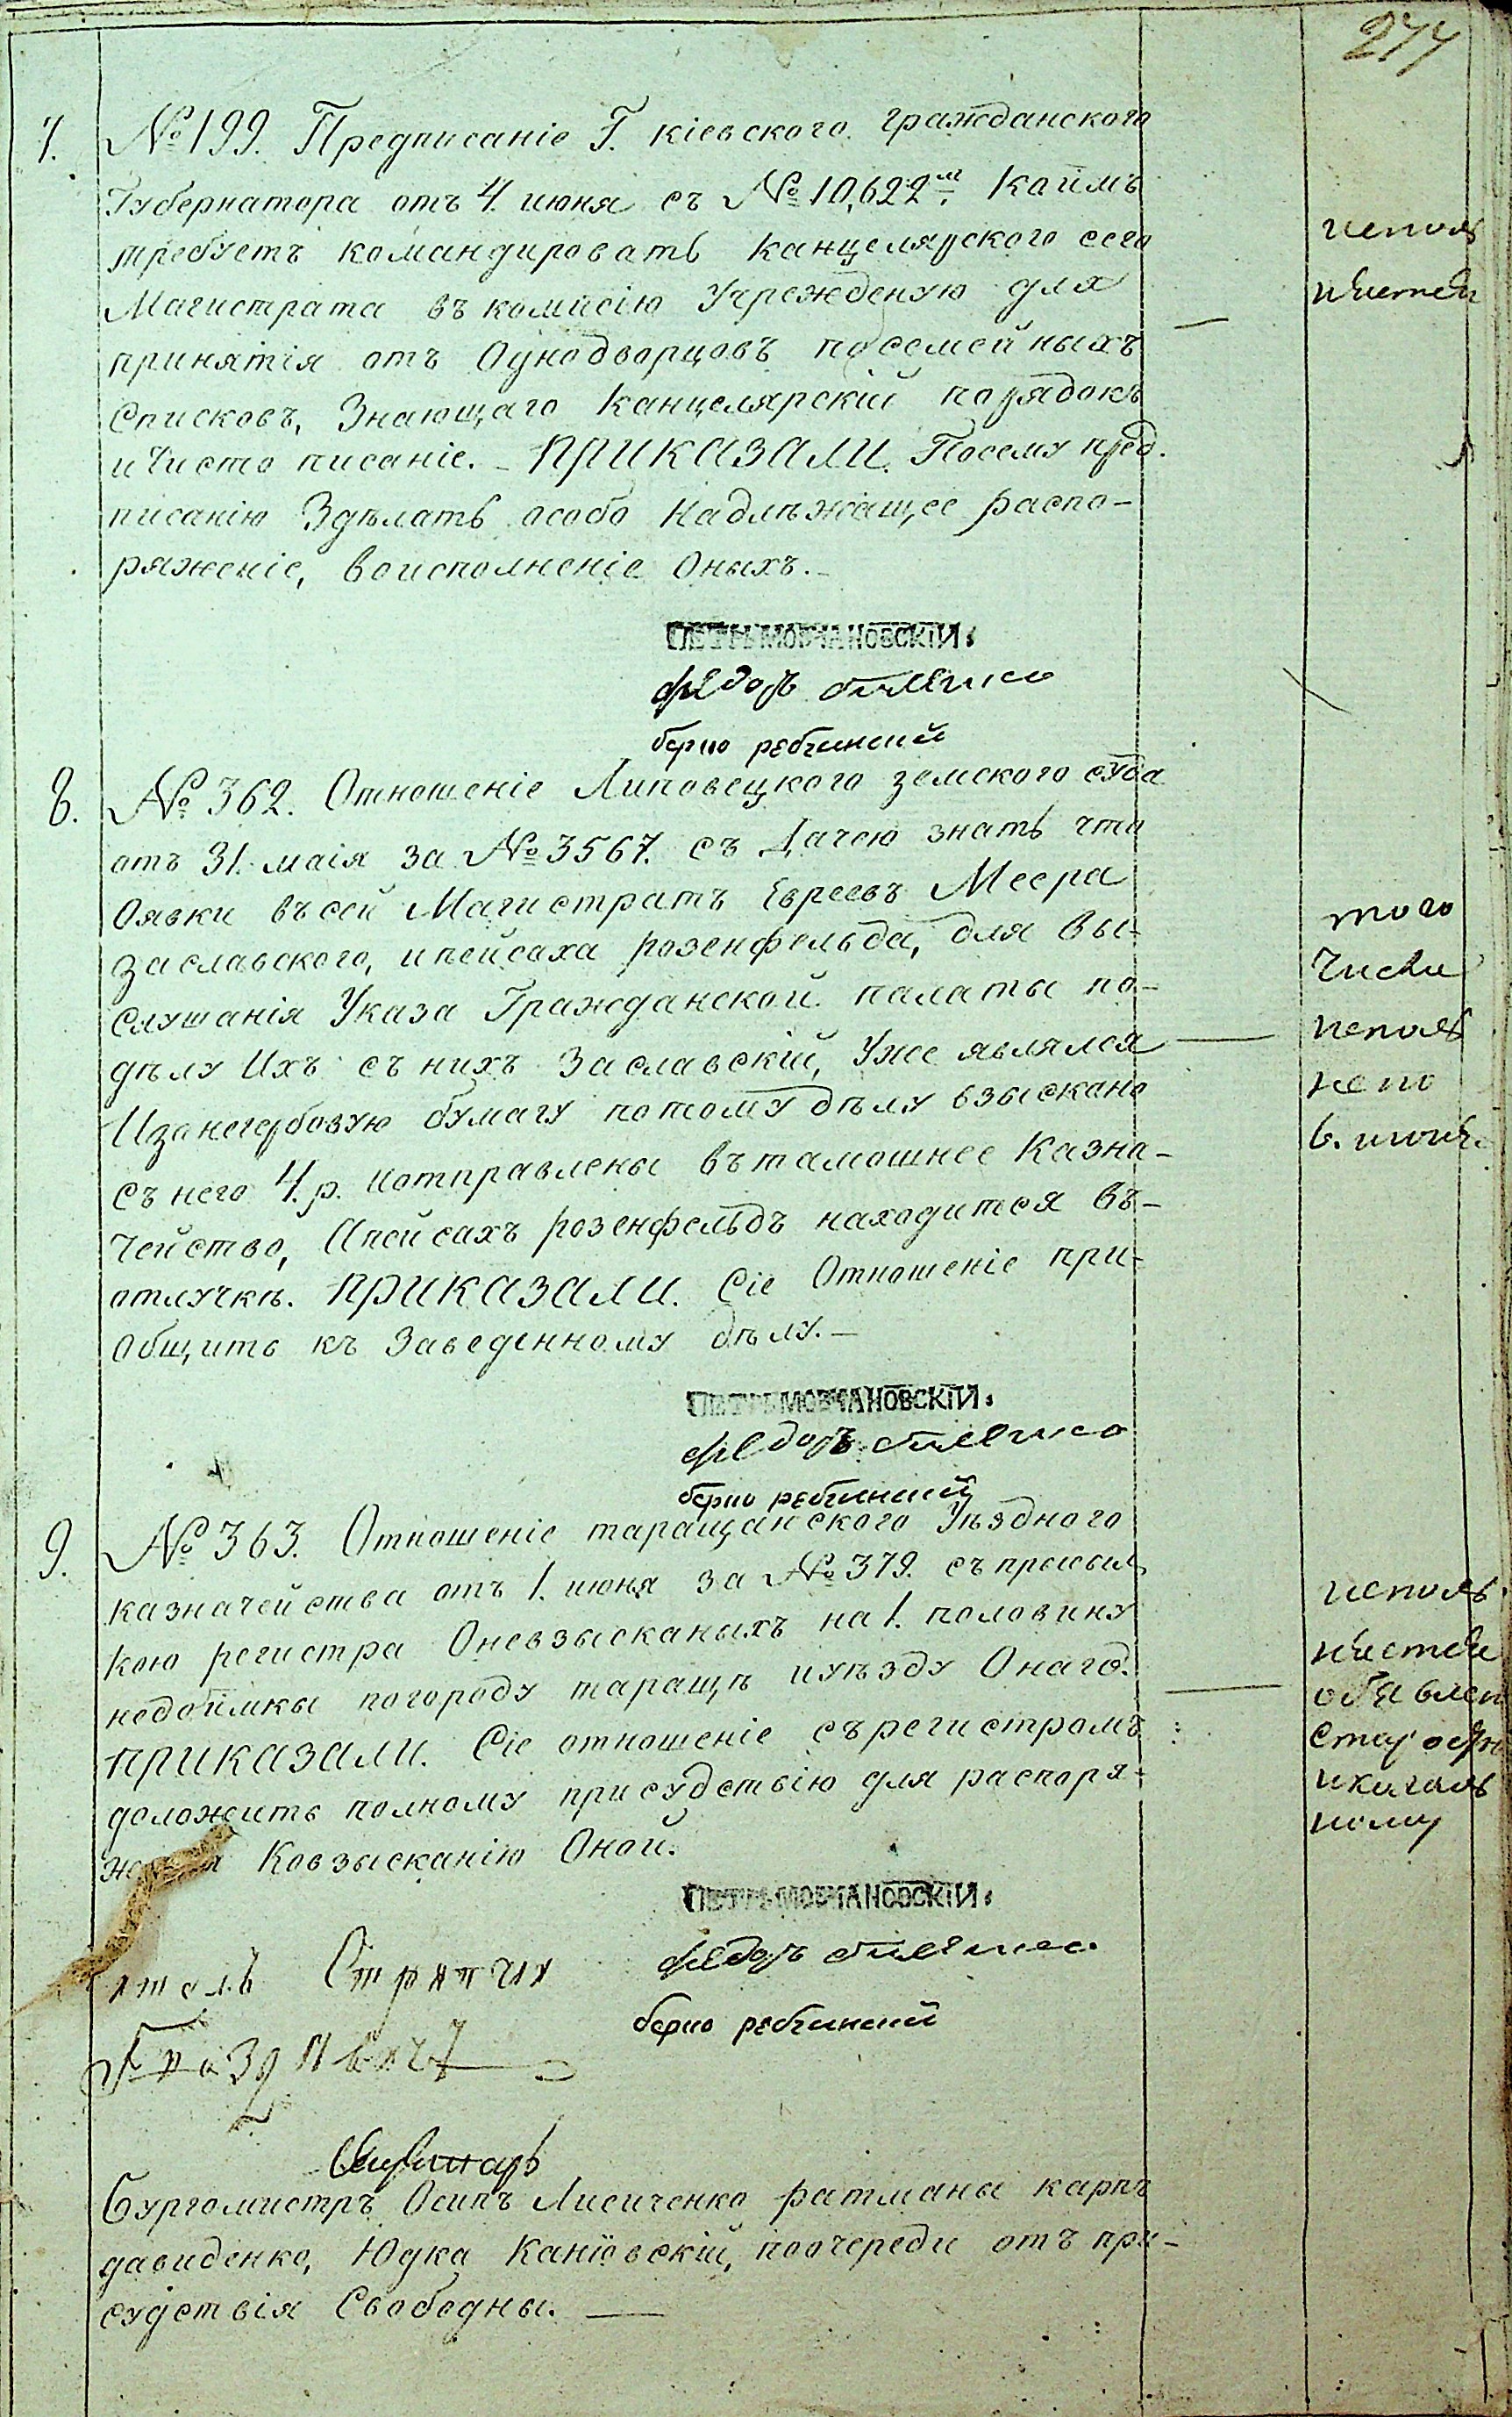 277
7. №199. Предписаніе Г. кіевского гражданского
Губернатора отъ 4. июня съ №10,622м. Коимъ
требуетъ командировать канцелярского сего
Магистрата въ комисію Учрежденую для
принятія отъ Однодворцовъ посемейныхъ
Списковъ, Знающаго Канцелярскій порядокъ
и Чисто писаніе. – ПРИКАЗАЛИ. Посему пред.
писанію Здѣлать особо надлѣжащее распо-
ряженіе, воисполненіе Оныхъ. –
исполн
ПЕТРЪ МОВЧАНОВСКІЙ.
федоръ
берко
8. №362. Отношеніе Липовецкого земского суда
отъ 31. маія за №3567. съ Дачею знать что
Оявки въсей Магистратъ Евреевъ Меера
Заславского, ипейсаха розенфельда, для Вы-
Слушанія Указа Гражданской палаты по-
дѣлу Ихъ съ нихъ Заславскій, Уже являлся
Изанегербовую бумагу потому дѣлу взыскано
Съ него 4. р. иотправлены въ тамошнее Казна-
Чейство, Апейсахъ розенфельдъ находится Въ-
отлучкѣ. ПРИКАЗАЛИ. Сіе Отношеніе при-
Общить къ Заведенному дѣлу. –
того
Числа
исполн
но по
6. июня
ПЕТРЪ МОВЧАНОВСКІЙ.
федоръ
берко
9. №363. Отношеніе таращанского Уѣздного
казначейства отъ 1. июня за №379. съ прысыл
кою регистра Оневзысканыхъ на 1. половину
недоимкы погороду таращѣ иуѣзду Онаго.
ПРИКАЗАЛИ. Сіе отношеніе съ регистромъ
доложить полному присудствію для распоря-
Ковзысканію Оной.
исполн.
объявлен
ПЕТРЪ МОВЧАНОВСКІЙ.
федоръ
берко
Стряпчих
Секретарь
Бургомистръ Осипъ Лисиченко ратманы карпъ
давиденко, Юдка Каніовскій, поочереди отъ при-
судствія Свободны. —